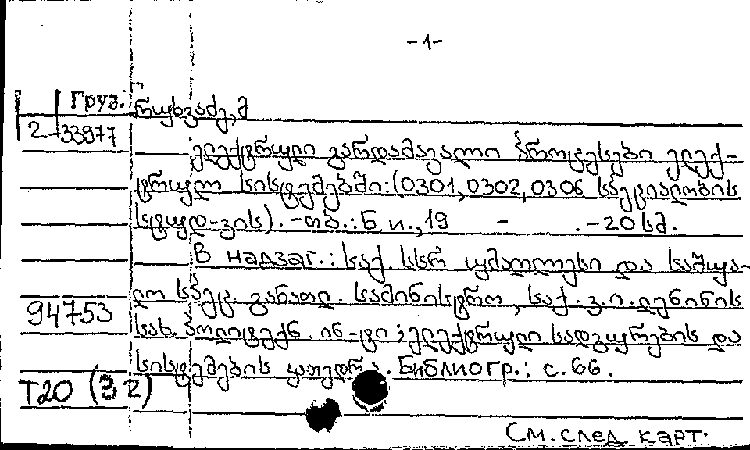 -1-
Груз. რუხვაძე, მ
2-33977
ელექტრული გარდამავალი პროცესები ელექ-
ტრულ სისტემებში: (0301, 0302, 0306 სპეციალობის
სტუდ-ვის). -თბ.: Б и., 19 - . -20 სმ.
В надзаг.: საქ. სსრ უმაღლესი და საშუა-
ლო სპეც. განათლ. სამინისტრო, საქ. ვ. ი. ლენინის
94753
სახ. პოლიტექნ. ინ-ტი; ელექტრული სადგურების და
სისტემების კათედრა. Библиогр.: с. 66.
T20 (32)
См. след карт.